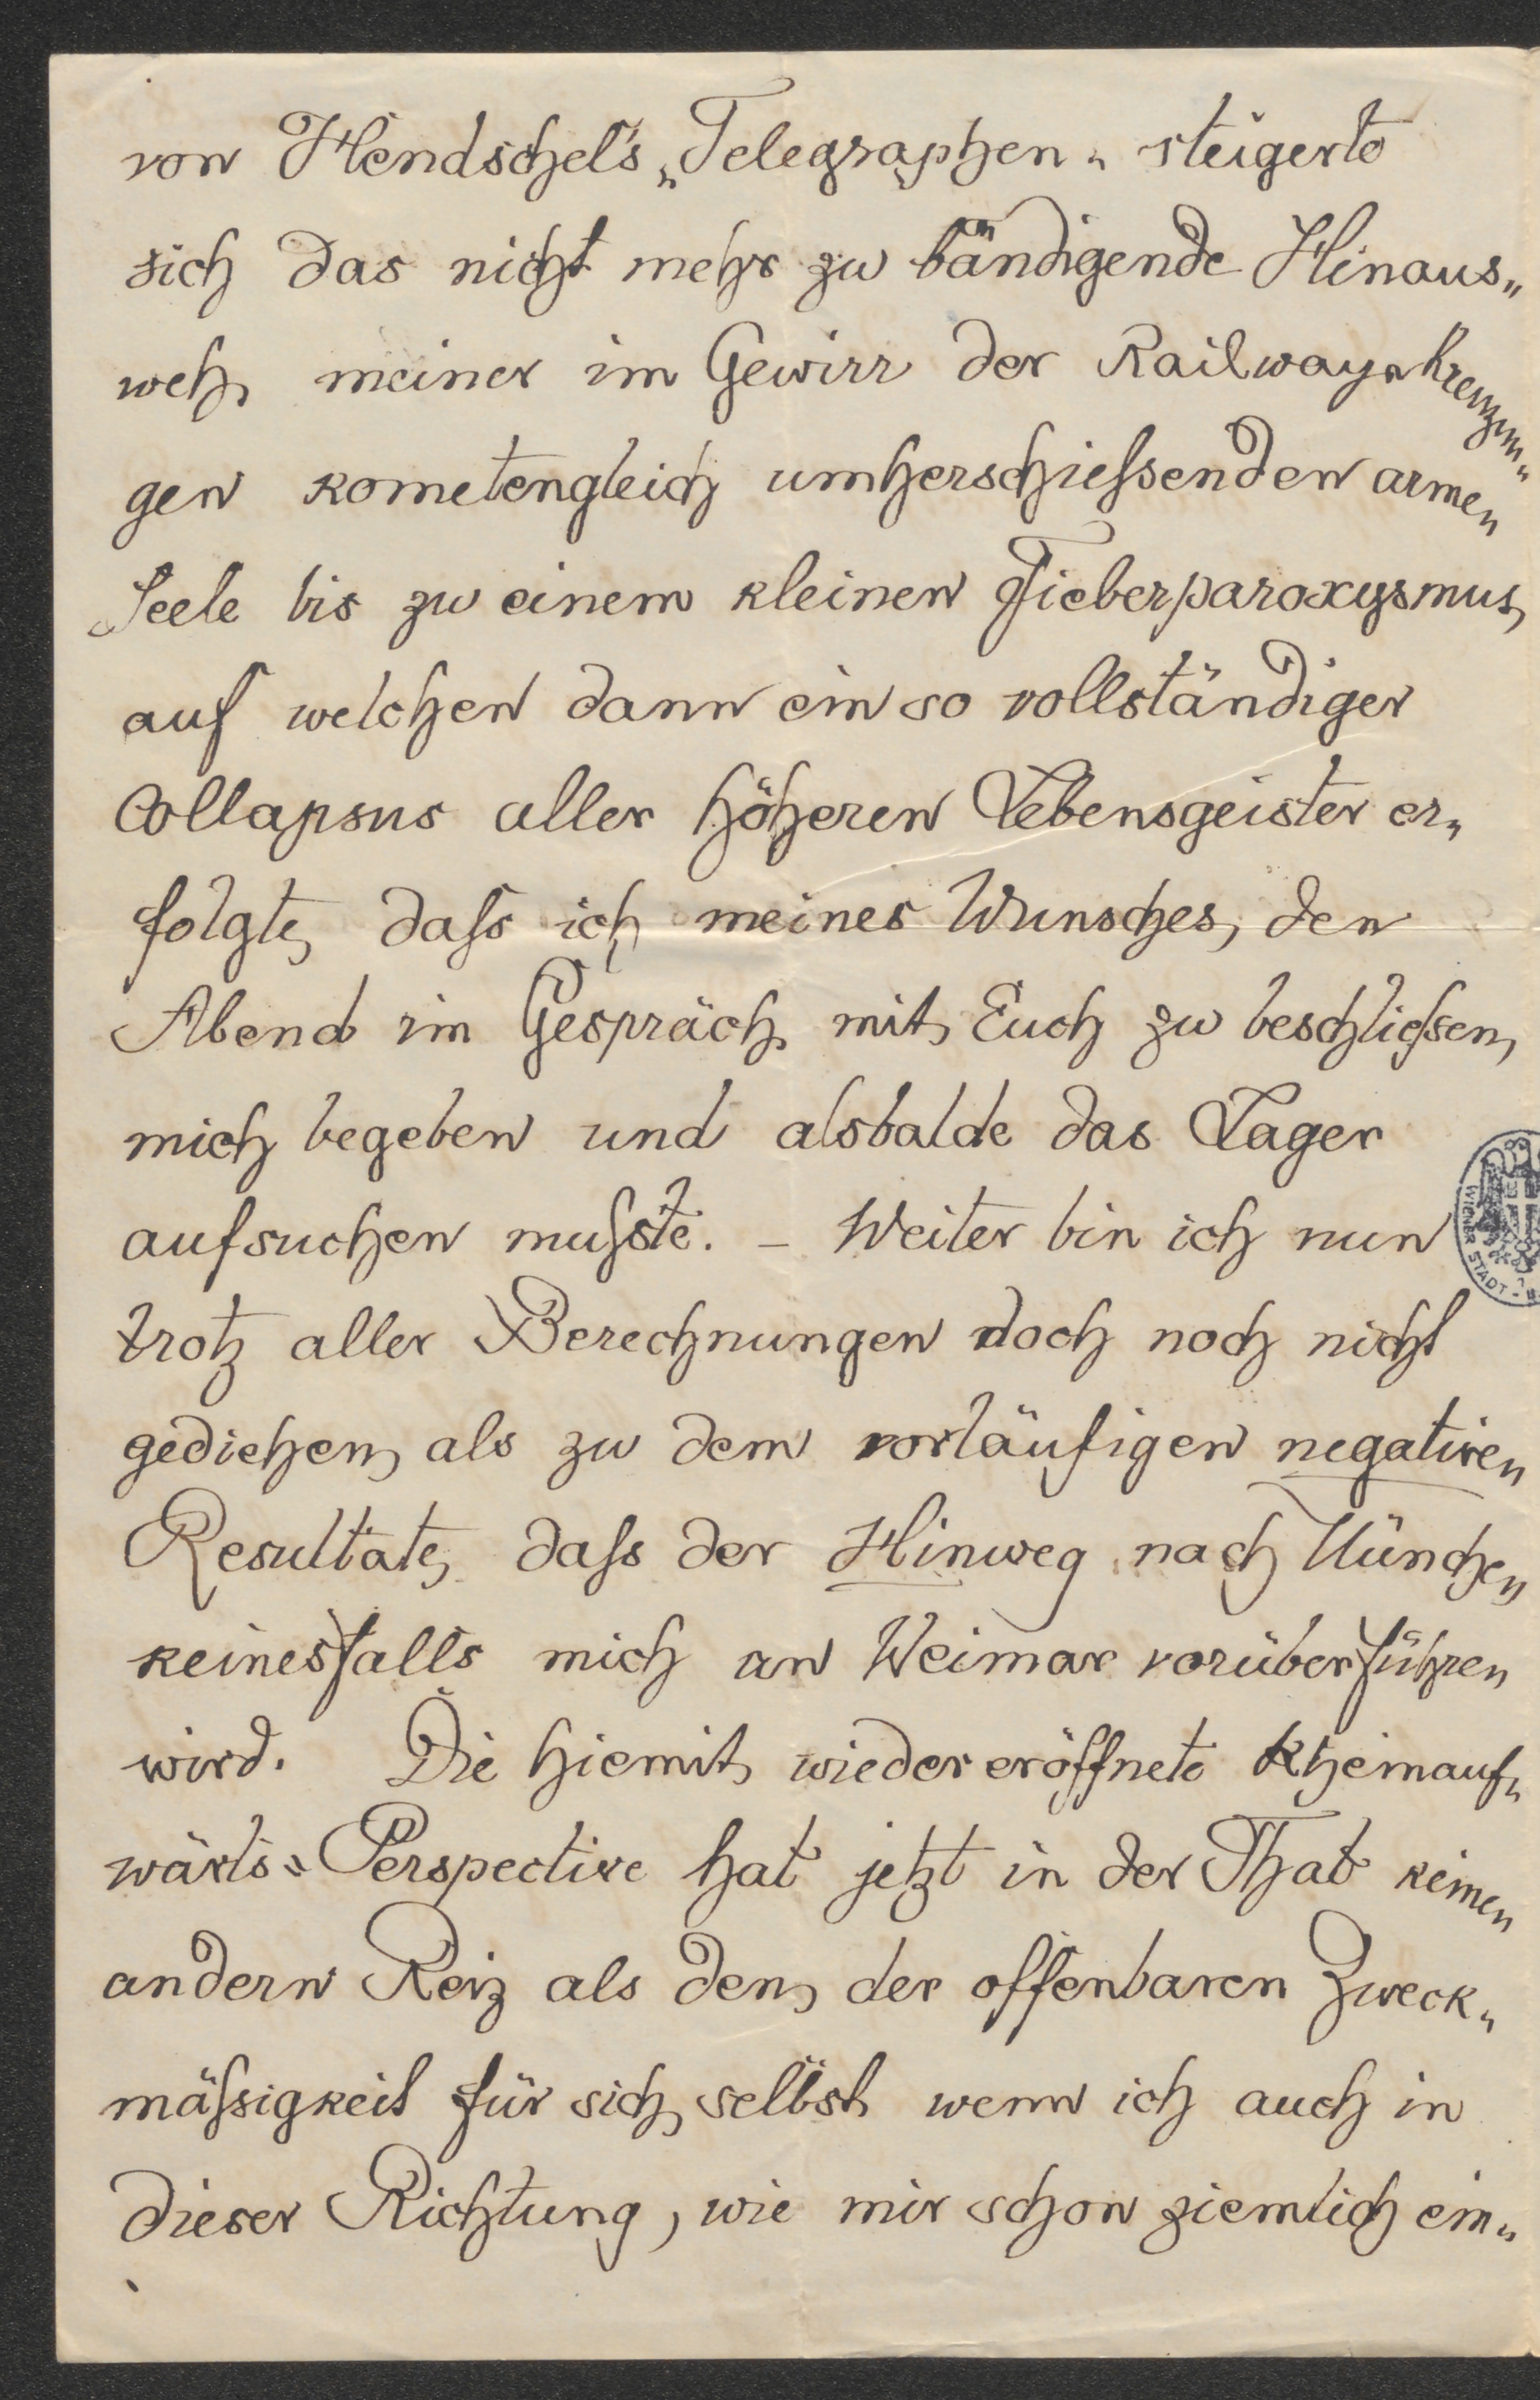 von Hendschel's „Telegraphen„ steigerte
sich das nicht mehr zu bändigende Hinaus„
weh meiner im Gewirr der Railway-Kreuzun„
gen kometengleich umherschießenden armen
Seele bis zu einem kleinen Fieberparoxysmus,
auf welchen dann ein so vollständiger
Collapsus aller höheren Lebensgeister er„
folgte, daß ich meines Wunsches, den
Abend im Gespräch mit Euch zu beschließen,
mich begeben und alsbalde das Lager
aufsuchen mußte. – Weiter bin ich nun
trotz aller Berechnungen doch noch nicht
gediehen, als zu dem vorläufigen negativen
Resultate, daß der Hinweg nach München
keinesfalls mich an Weimar vorüberführen
wird. Die hiemit wieder eröffnete Rheinauf„
wärts-Perspective hat jetzt in der That keinen
andern Reiz als den, der offenbaren Zweck„
mäßigkeit für sich selbst wenn ich auch in
dieser Richtung, wie mir schon ziemlich ein„
WIENER STADT-